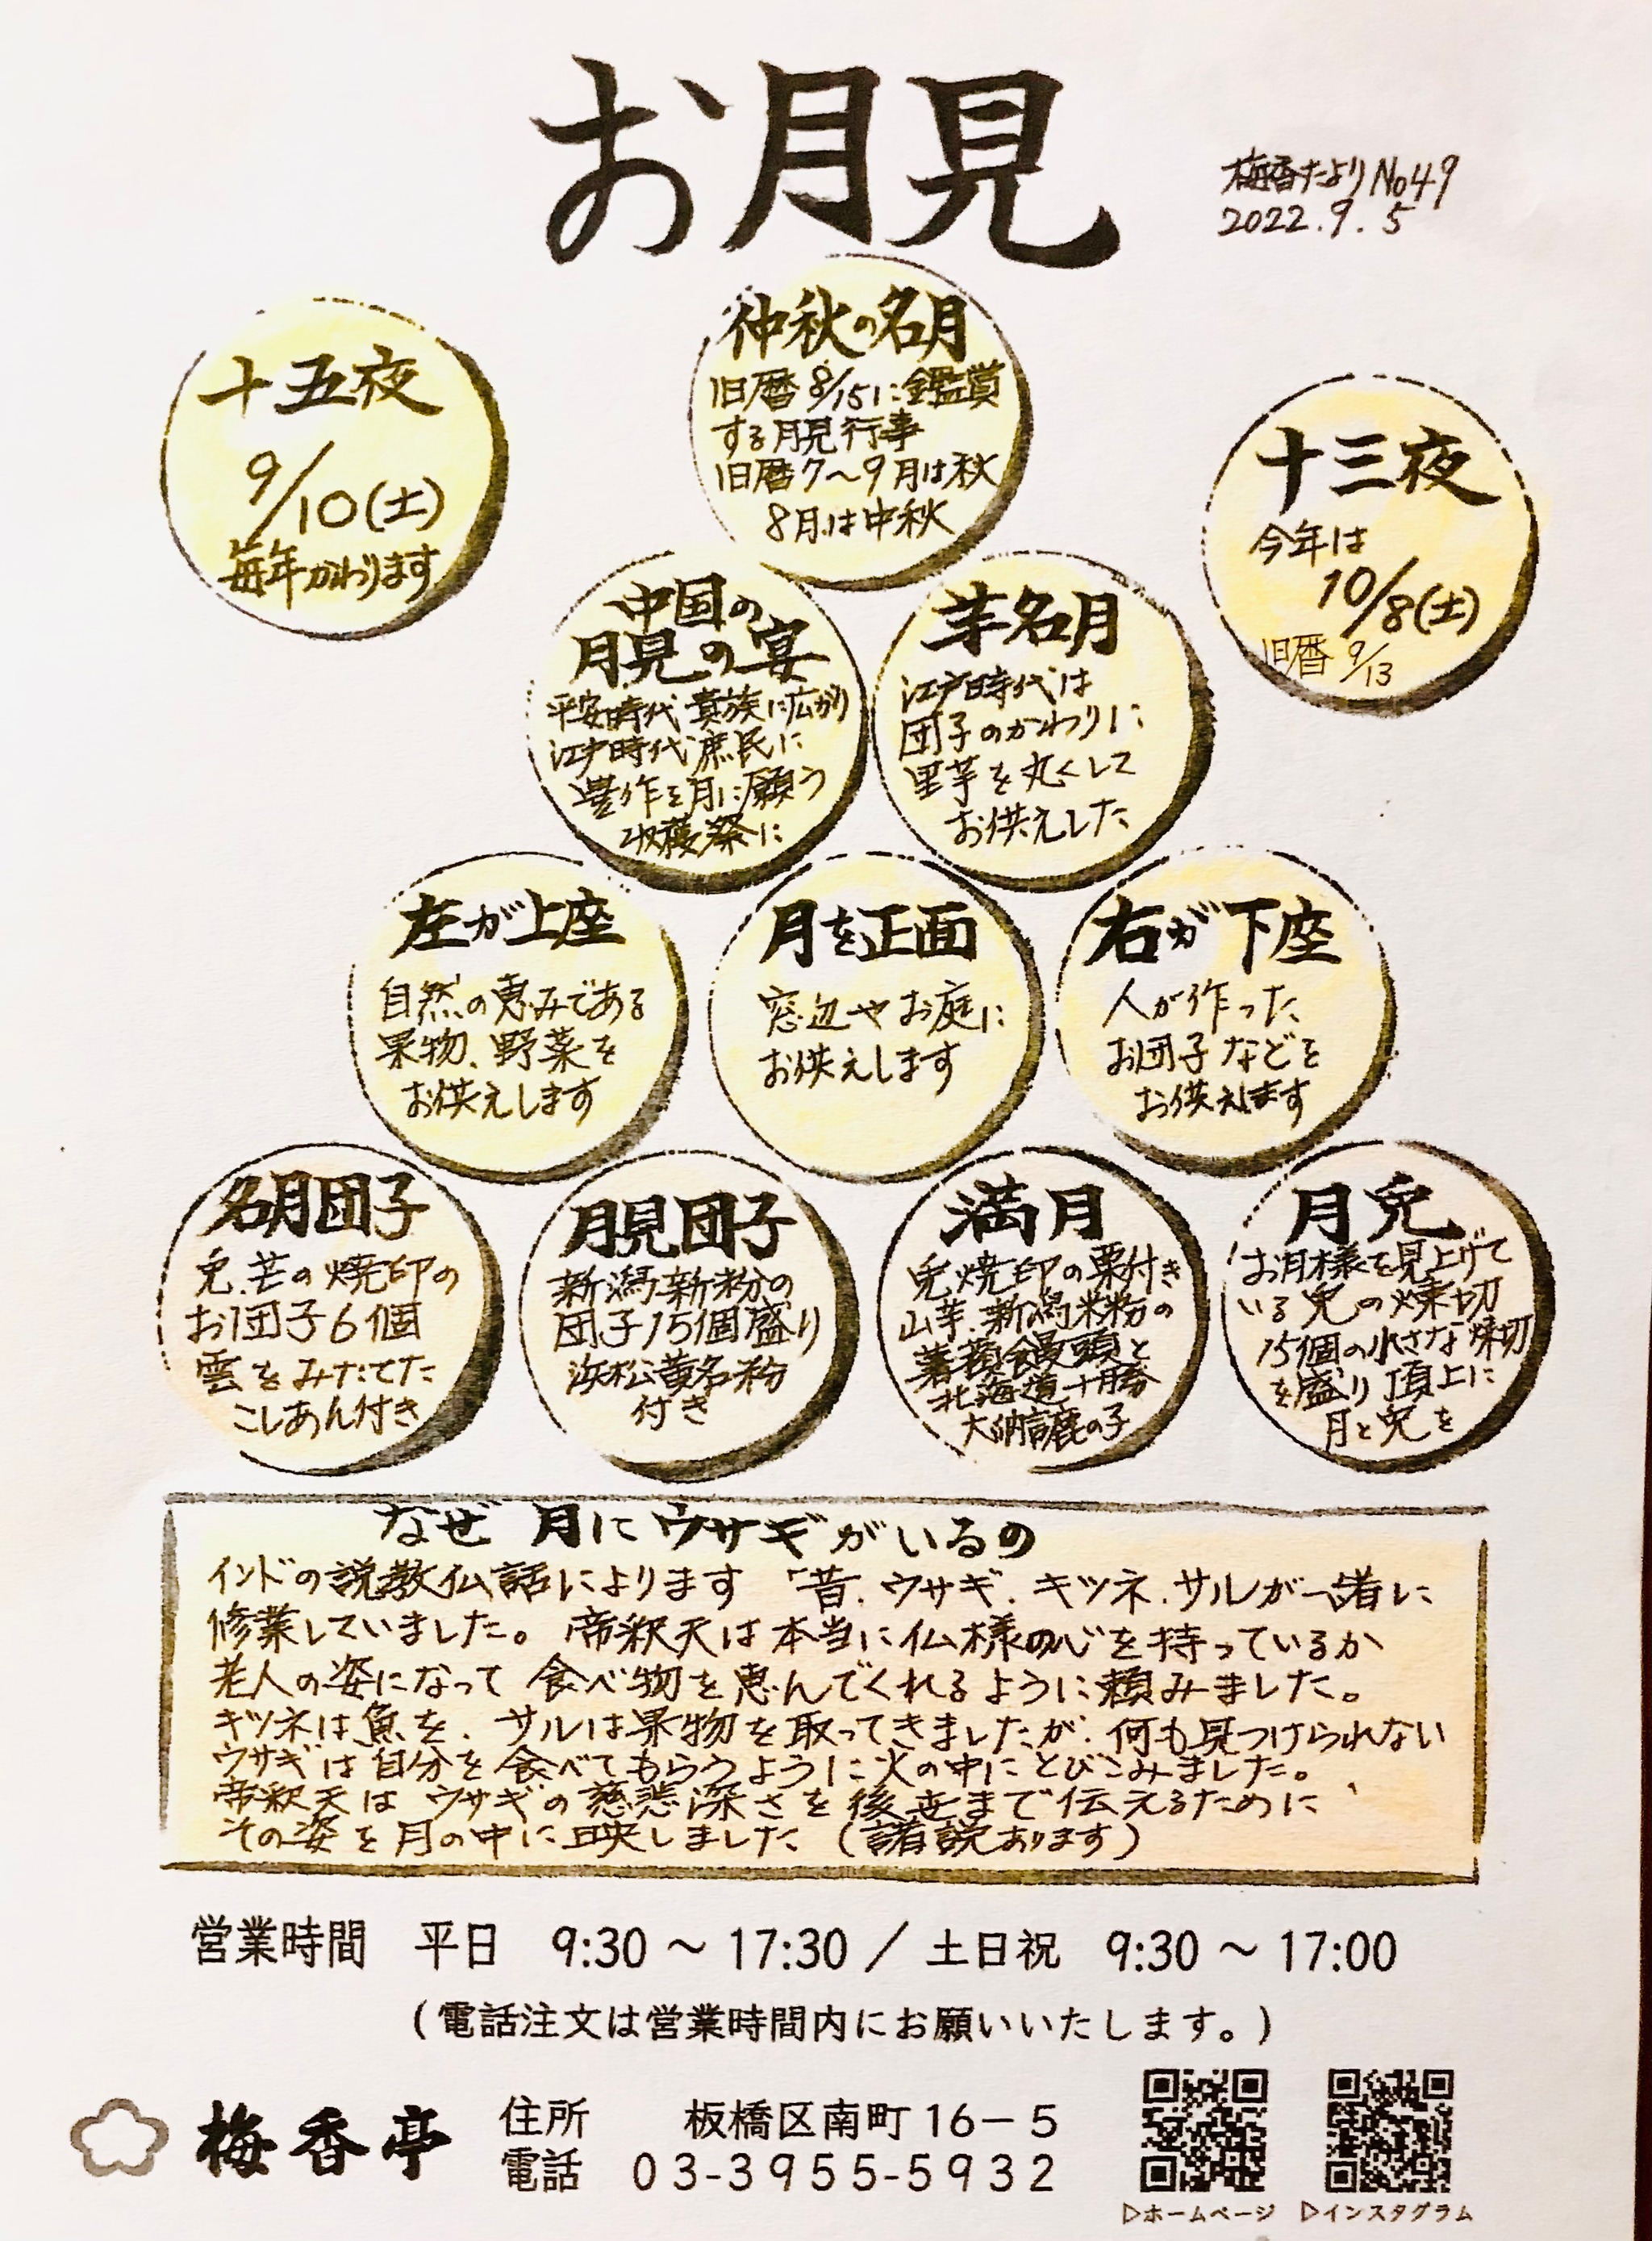 お月見
梅香だより No49
2022.9.5
十五夜
9/10(土)
毎年かわります
仲秋の名月
旧暦8/15に鑑賞
する月見行事
旧暦7〜9月は秋
8月は中秋
十三夜
今年は
10/8(土)
旧暦9/13
中国の
月見の宴
平安時代貴族に広がり
江戸時代庶民に
豊作を月に願う
収穫祭に
芋名月
江戸時代は
団子のかわりに
里芋を丸くして
お供えした
左が上座
自然の恵みである
果物、野菜を
お供えします
月を正面
窓辺やお庭に
お供えします
右が下座
人が作った
お団子などを
お供えます
名月団子
兎、芒の焼印の
お団子6個
雲をみたてた
こしあん付き
月見団子
新潟新粉の
団子15個盛り
浜松黄名粉
付き
満月
兎焼印の栗付き
山芋、新潟米粉の
薯蕷饅頭と
北海道十勝
大納言鹿の子
月兎
お月様を見上げて
いる兎の煉切
15個の小さな煉切
を盛り頂上に
月と兎を
なぜ 月にウサギがいるの
インドの説教仏話によります 「昔、ウサギ、キツネ、サルが一諸に
修業していました。帝釈天は本当に仏様の心を持っているか
老人の姿になって 食べ物を恵んでくれるように頼みました。
キツネは魚を、サルは果物を取ってきましたが、何も見つけられない
ウサギは自分を食べてもらうように火の中にとびこみました。
帝釈天は ウサギの慈悲深さを後世まで伝えるために
その姿を月の中に映しました（諸説あります）
営業時間 平日 9:30 〜 17:30 ／ 土日祝 9:30 〜 17:00
（電話注文は営業時間内にお願いいたします。）
梅香亭
住所 板橋区南町16－5
電話 03-3955-5932
▷ホームページ ▷インスタグラム